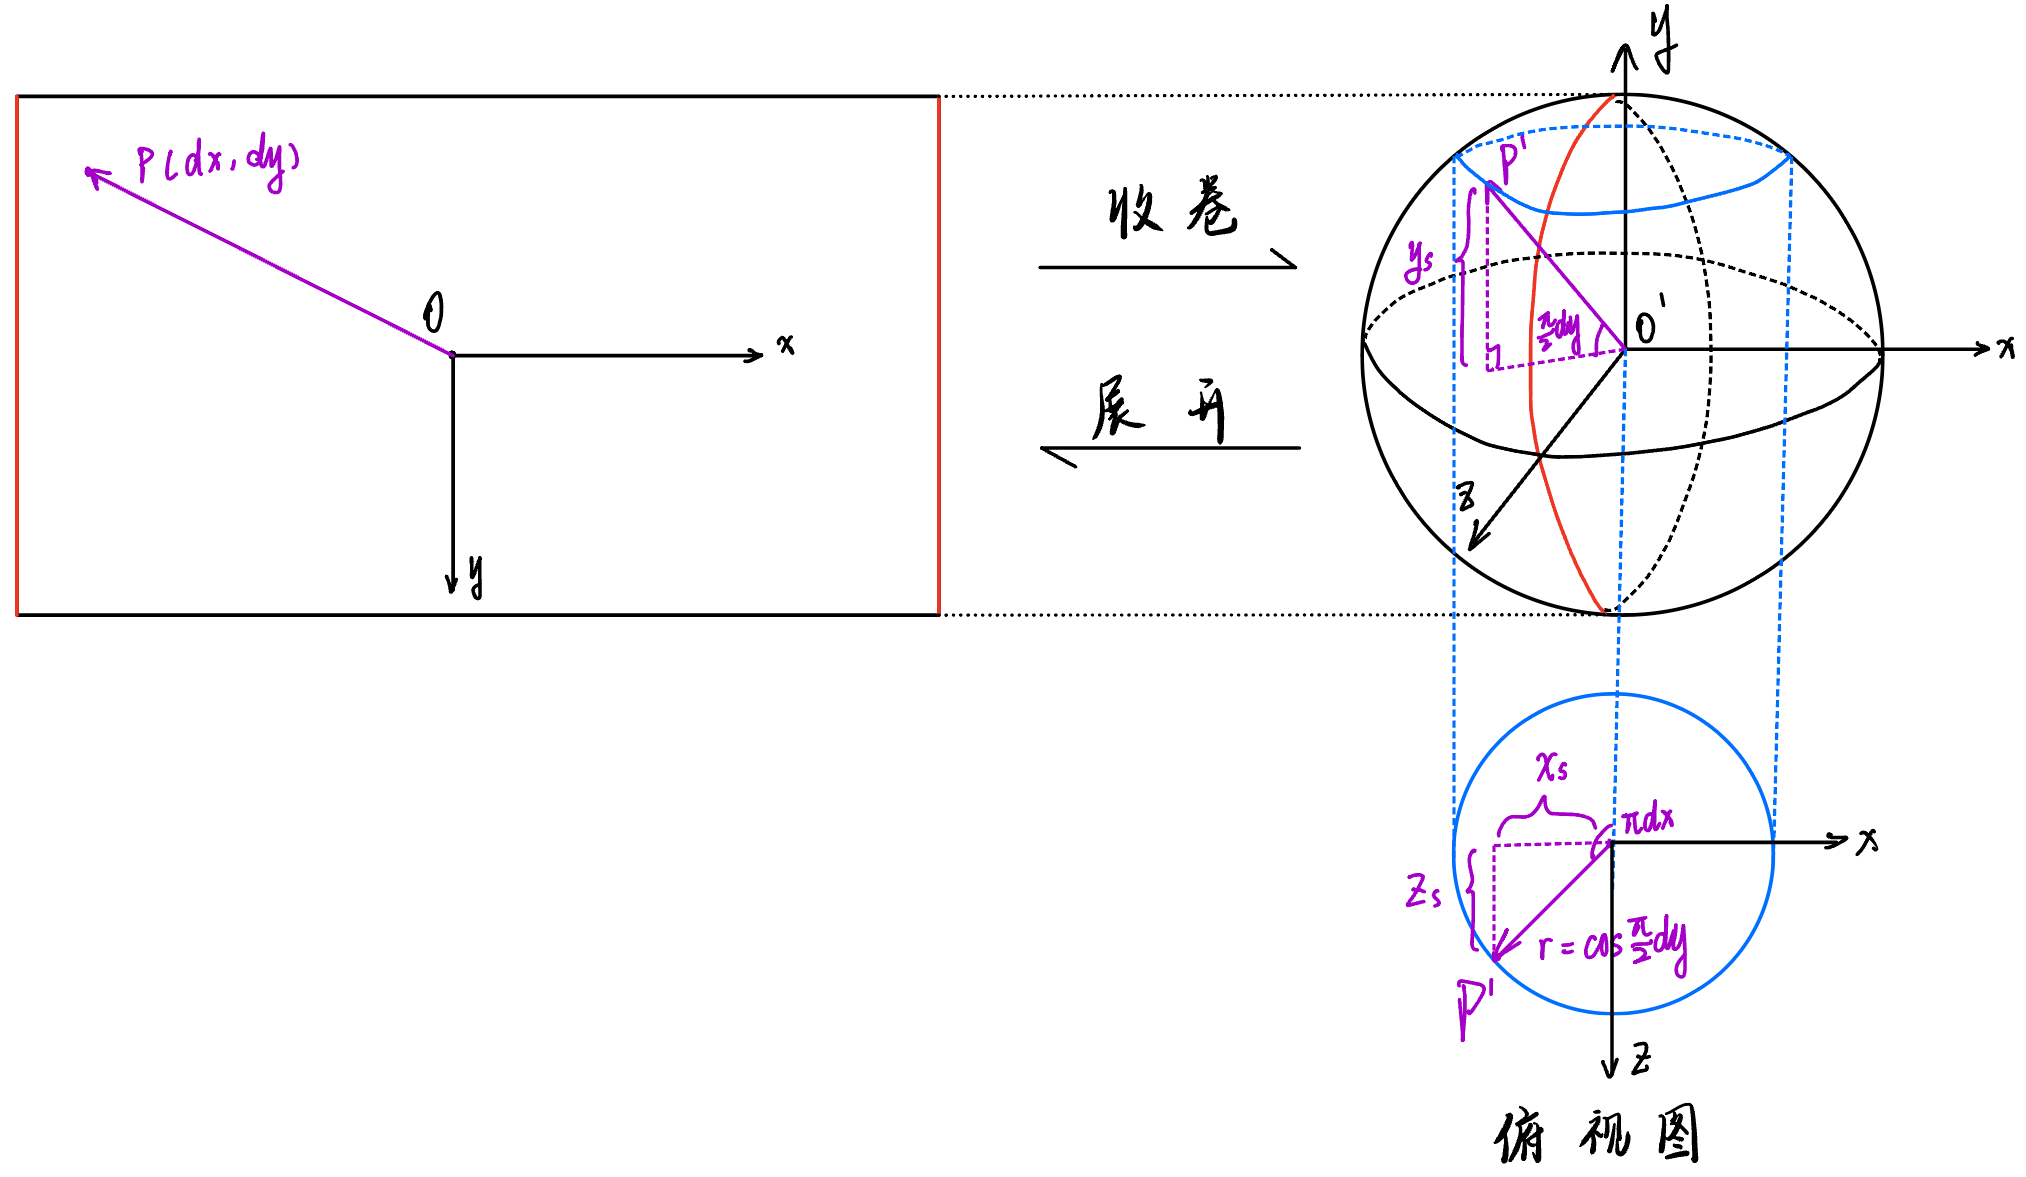 P(dx,dy)
O
x
y
收卷
展开
y
P'
ys
π/2 dy
O'
x
z
xs
πdx
x
zs
r=cos π/2 dy
P'
z
俯视图